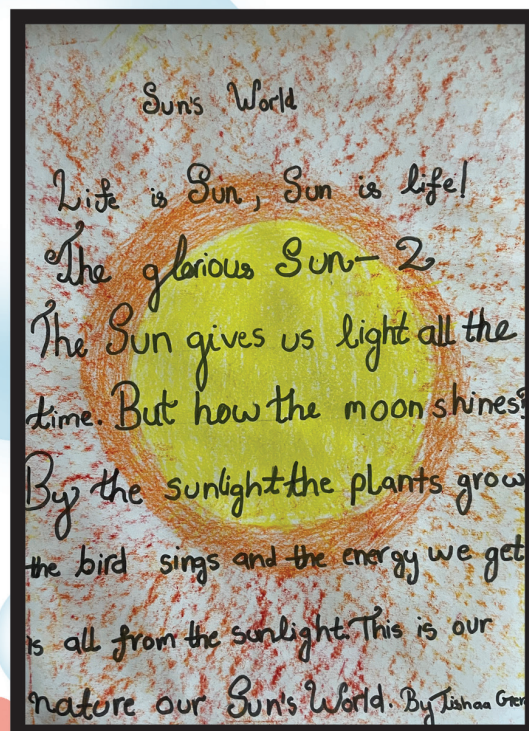 Sun's World
Life is Sun, Sun is life!
The glorious Sun- 2
The Sun gives us light all the
time. But how the moon shines?
By the sunlight the plants grow
the bird sings and the energy we get
is all from the sunlight. This is our
nature our Sun's World. By Tishaa